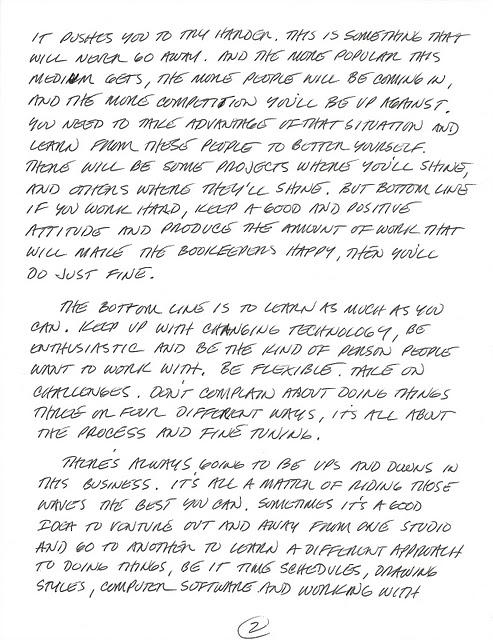 IT PUSHES YOU TO TRY HARDER. THIS IS SOMETHING THAT
WILL NEVER GO AWAY. AND THE MORE POPULAR THIS
MEDIUM GETS, THE MORE PEOPLE WILL BE COMING IN,
AND THE MORE COMPETITION YOU'LL BE UP AGAINST.
YOU NEED TO TAKE ADVANTAGE OF THAT SITUATION AND
LEARN FROM THESE PEOPLE TO BETTER YOURSELF.
THERE WILL BE SOME PROJECTS WHERE YOU'LL SHINE,
AND OTHERS WHERE THEY'LL SHINE. BUT BOTTOM LINE
IF YOU WORK HARD, KEEP A GOOD AND POSITIVE
ATTITUDE AND PRODUCE THE AMOUNT OF WORK THAT
WILL MAKE THE BOOKEEPERS HAPPY, THEN YOU'LL
DO JUST FINE.
THE BOTTOM LINE IS TO LEARN AS MUCH AS YOU
CAN. KEEP UP WITH CHANGING TECHNOLOGY, BE
ENTHUSIASTIC AND BE THE KIND OF PERSON PEOPLE
WANT TO WORK WITH. BE FLEXIBLE. TAKE ON
CHALLENGES. DON'T COMPLAIN ABOUT DOING THINGS
THREE OR FOUR DIFFERENT WAYS, IT'S ALL ABOUT
THE PROCESS AND FINE TUNING.
THERE'S ALWAYS GOING TO BE UPS AND DOWNS IN
THIS BUSINESS. IT'S ALL A MATTER OF RIDING THOSE
WAVES THE BEST YOU CAN. SOMETIMES IT'S A GOOD
IDEA TO VENTURE OUT AND AWAY FROM ONE STUDIO
AND GO TO ANOTHER TO LEARN A DIFFERENT APPROACH
TO DOING THINGS, BE IT TIME SCHEDULES, DRAWING
STYLES, COMPUTER SOFTWARE AND WORKING WITH
2